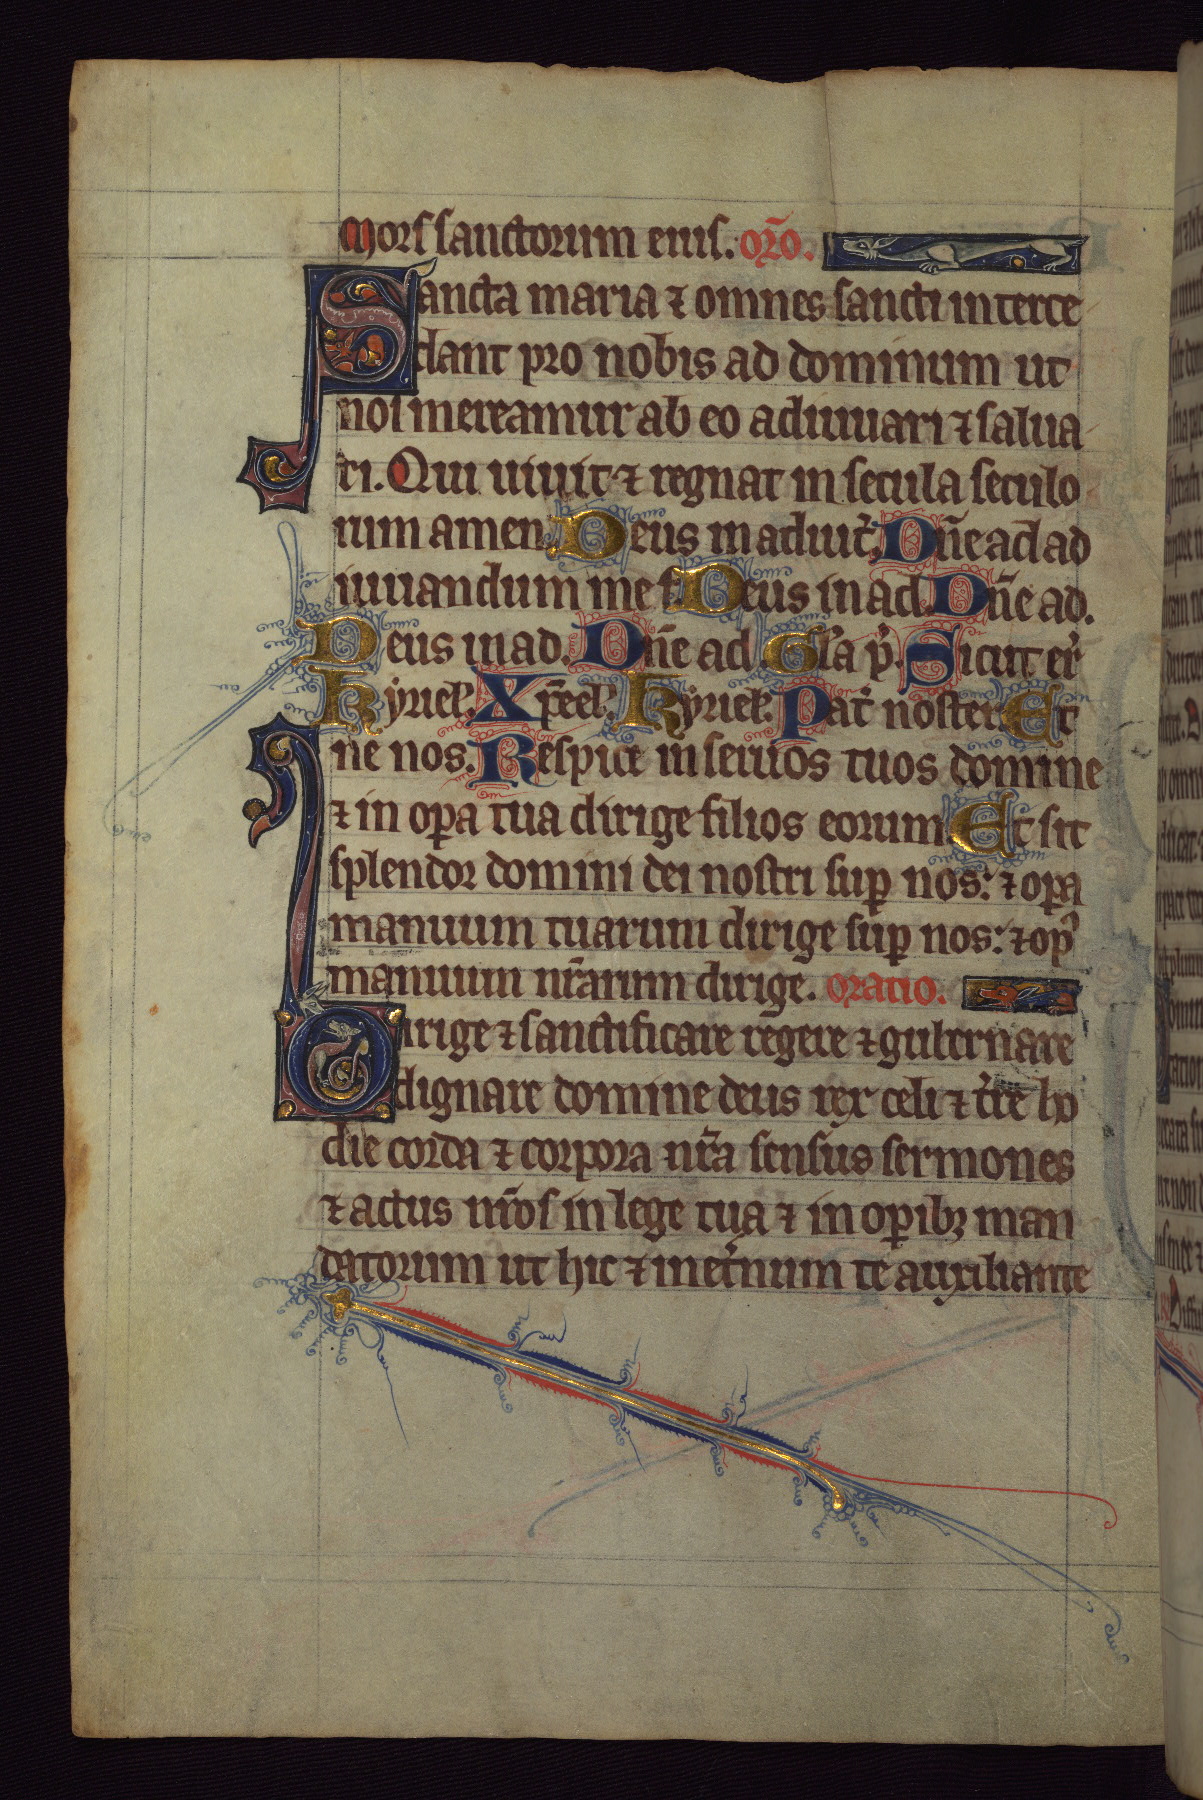 Mors sanctorum eius. or̄o.
Sancta maria ⁊ omnes sancti interce
dant pro nobis ad dominum ut
nos mereamur ab eo adiuuari ⁊ salua
ri. Qui uiuit ⁊ regnat in secula seculo
rum amen. Deus in adiuit̾. Dn̄e ad ad
iuuandum me f. Deus in ad. Dn̄e ad.
Deus in ad. Dn̄e ad. Gl̄a p̾. Sicut er̾
Kyriel̾. Xp̄eel̾. Kyriel̾. Pat̾ noster. Et
ne nos. Respice in seruos tuos domine
⁊ in oꝑa tua dirige filios eorum. Et sit
splendor domini dei nostri suꝑ nos: ⁊ oꝑa
manuum tuarum dirige suꝑ nos: ⁊ op̾
manuum nr̄arum dirige. oratio.
Dirige ⁊ sanctificare regere ⁊ gubernare
dignare domine deus rex celi ⁊ t̾re ho
die corda ⁊ corpora nr̄a sensus sermones
⁊ actus nr̄os in lege tua ⁊ in oꝑibꝫ man
datorum ut hic ⁊ inet̾num te auxiliante